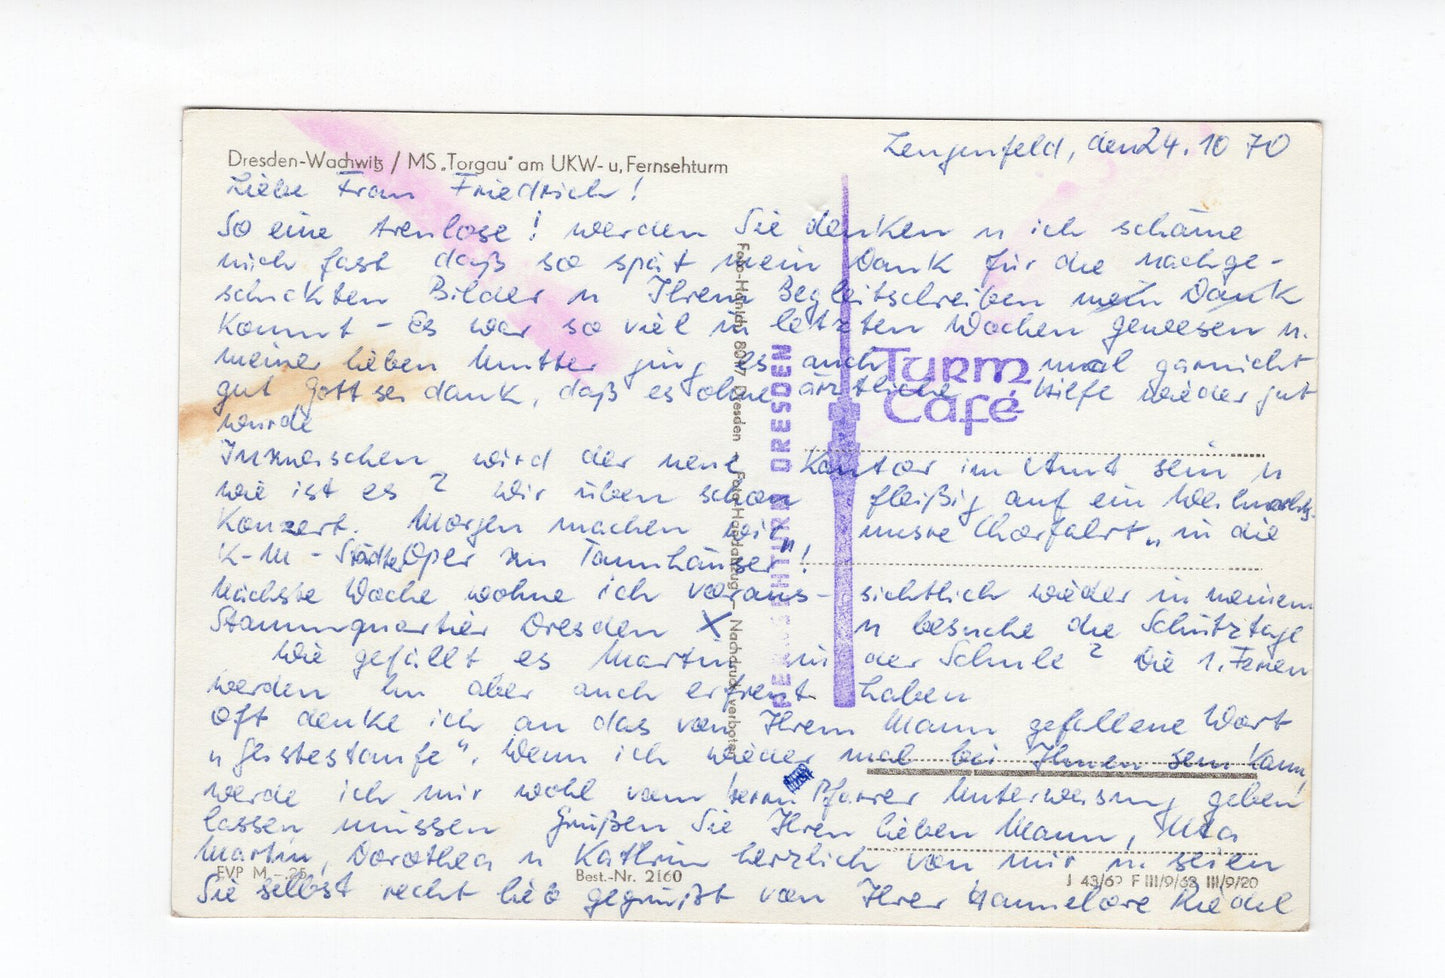 Lengenfeld, den 24. 10 70
Dresden-Wachwitz / MS „Torgau“ am UKW- u. Fernsehturm
Liebe Frau Friedrich!
So eine treulose! werden Sie denken u ich schäme
mich fast daß so spät mein Dank für die nachge-
schickten Bilder u Ihrem Begleitschreiben mein Dank
kommt - Es war so viel in letzten Wochen gewesen u.
meiner lieben Mutter ging es auch mal garnicht
gut Gott sei dank, daß es ohne ärztliche Hilfe wieder gut
wurde
Inzwischen wird der neue Kantor im Amt sein u
wie ist es? Wir üben schon fleißig auf ein Weihnachts-
Konzert. Morgen machen wir unsre Chorfahrt „in die
K-M-Städter Oper zu Tannhäuser“!
Nächste Woche wohne ich voraus- sichtlich wieder in meinem
Stammquartier Dresden X u besuche die Schütztage
Wie gefällt es Martin in der Schule? Die 1. Ferien
werden ihn aber auch erfreut haben
Oft denke ich an das von Ihrem Mann gefallene Wort
„Geistestaufe“. Wenn ich wieder mal bei Ihnen sein kann,
werde ich mir wohl vom Herrn Pfarrer Unterweisung geben
lassen müssen Grüßen Sie Ihren lieben Mann, Uta
Martin, Dorothea u Kathrin herzlich von mir u. seien
Sie selbst recht lieb gegrüßt von Ihrer Hannelore Riedel
EVP M –.25
Best.-Nr. 2160
J 43/69 F III/9/68 III/9/20
Foto-Hanich 8017 Dresden Foto-Handabzug – Nachdruck verboten
FERNSEHTURM DRESDEN
Turm
Café